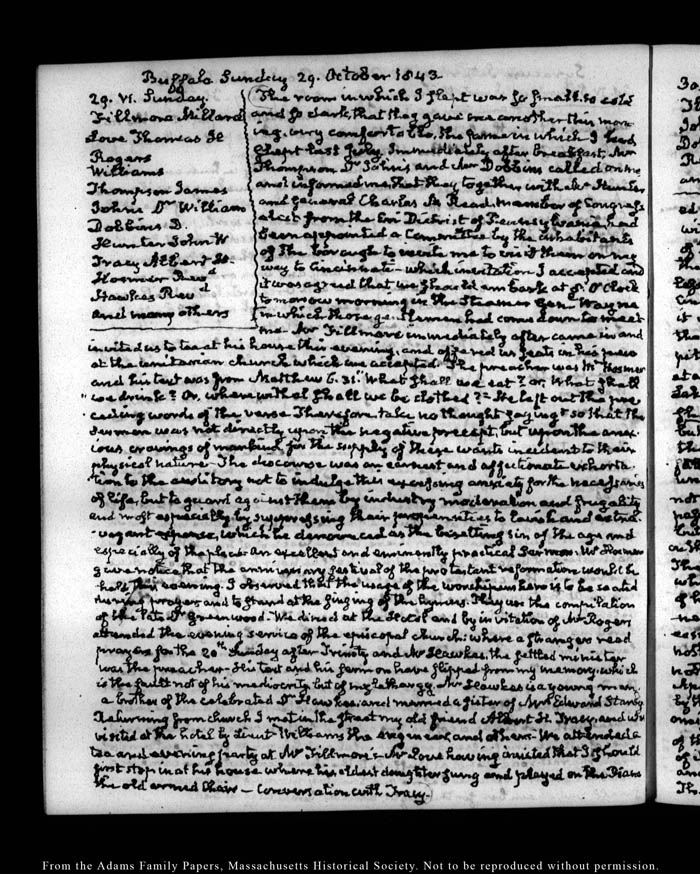 Buffalo Sunday 29. October 1843
29. VI. Sunday.
Fillmore Millard
Love Thomas
Rogers
Williams
Thompson James
Johns Dr William
Dobbins D.
Hunter John W
Tracy Albert H.
Hosmer Revd
Hawkes Revd
and many others
The room in which I slept was so small, so cold
and so dark, that they gave me another this morn-
ing, very comfortable, the same in which I had
slept last July. Immediately after breakfast, Mr
Thompson Dr Johns and Mr Dobbins called on me
and informed me that they together with Mr Hunter
and General Charles M. Read, member of Congress
elect from the Erie District of Pennsylvania, had
been appointed a Committee by the inhabitants
of the borough to invite me to visit them on my
way to Cincinnati – which invitation I accepted and
it was agreed that we should embark at 9. O'Clock
tomorrow morning in the Steamer Genl Wayne
in which those gentlemen had come down to meet
me. Mr Fillmore immediately after came in and
invited us to tea at his house this evening, and offered us seats in his pew
at the unitarian church which we accepted. The preacher was Mr Hosmer
and his text was from Matthew 6. 31. What shall we eat? or, What shall
we drink? Or, wherewithal shall we be clothed? – He left out the pre-
ceding words of the verse Therefore, take no thought, saying – so that the
Sermon was not directly upon the negative precept, but upon the anx-
ious cravings of mankind for the supply of these wants incident to their
physical nature – The discourse was an earnest and affectionate exhorta-
tion to the auditory not to indulge this excessive anxiety for the necessaries
of life, but to guard against them by industry moderation and frugality
and most especially by suppressing their propensities to lavish and extra-
vagant expense, which he denounced as the besetting sin of the age and
especially of the place – an excellent and eminently practical Sermon. Mr Hosmer
gave notice that the anniversary festival of the protestant reformation would be
held this evening. I observed that the usage of the worshippers here is to be seated
during prayer and to stand at the singing of the hymns. They use the compilation
of the late Dr Greenwood – We dined at the Hotel and by invitation of Mr Rogers
attended the evening service of the episcopal church: where a stranger read
prayers for the 20th Sunday after Trinity and Mr Hawkes, the settled minister
was the preacher – His text and his sermon have slipped from my memory: which
is the fault not of his mediocrity but of my lethargy. Mr Hawkes is a young man,
a brother of the celebrated Dr Hawkes, and married a sister of Mrs Edward Stanly
Returning from church I met in the street my old friend Albert H. Tracy, and was
visited at the hotel by Lieut Williams the engineer, and others – We attended a
tea and evening party at Mr Fillmore's – Mr Love having insisted that I should
first stop in at his house where his oldest daughter sung and played on the Piano
the old armed Chair – Conversation with Tracy.
From the Adams Family Papers, Massachusetts Historical Society. Not to be reproduced without permission.